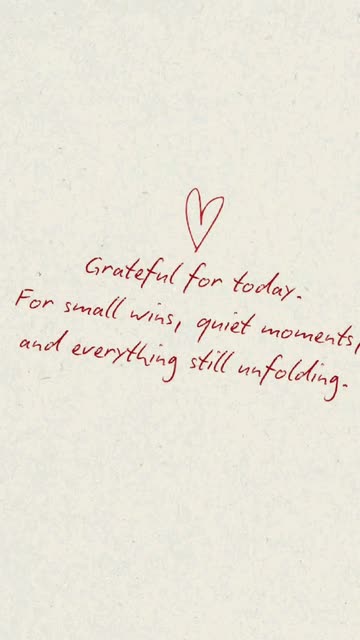 Grateful for today.
For small wins, quiet moments,
and everything still unfolding.